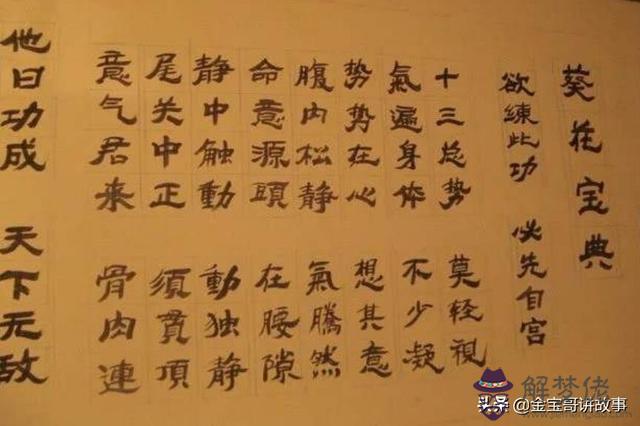 葵花宝典
欲練此功 必先自宫
十三总势 莫轻視
氣遍身体 不少凝
势势在心 想其意
腹内松静 氣騰然
命意源頭 在腰隙
静中触動 動独静
尾关中正 須貫項
意气君来 骨肉連
他日功成 天下无敌
解梦佬
头条 @金宝哥讲故事